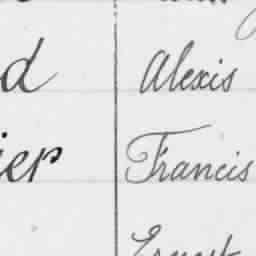 d Alexis
ier Francis
Ernest